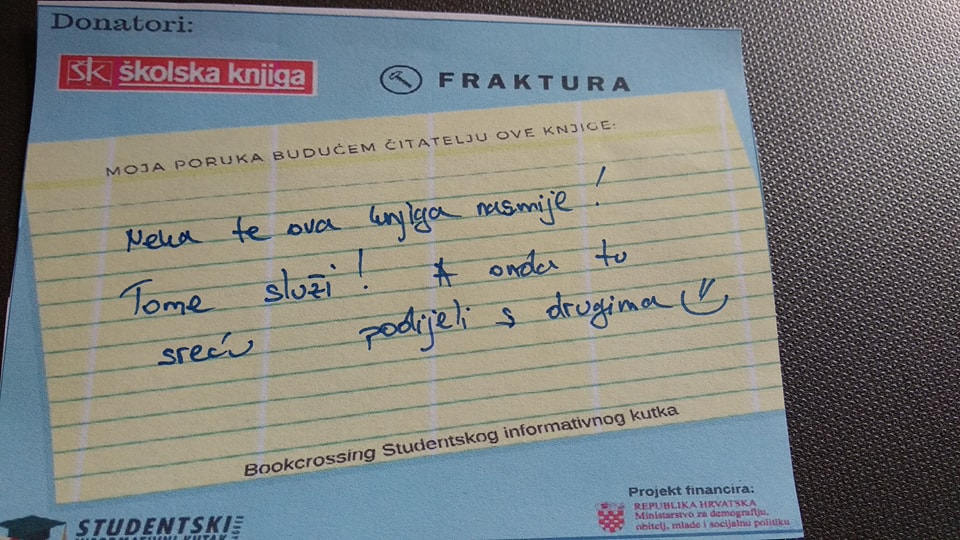 Donatori:
šk školska knjiga
FRAKTURA
MOJA PORUKA BUDUĆEM ČITATELJU OVE KNJIGE:
Neka te ova knjiga nasmije!
Tome služi! A onda tu
sreću podijeli s drugima
Bookcrossing Studentskog informativnog kutka
Projekt financira:
REPUBLIKA HRVATSKA
Ministarstvo za demografiju,
obitelj, mlade i socijalnu politiku
STUDENTSKI
INFORMATIVNI KUTAK